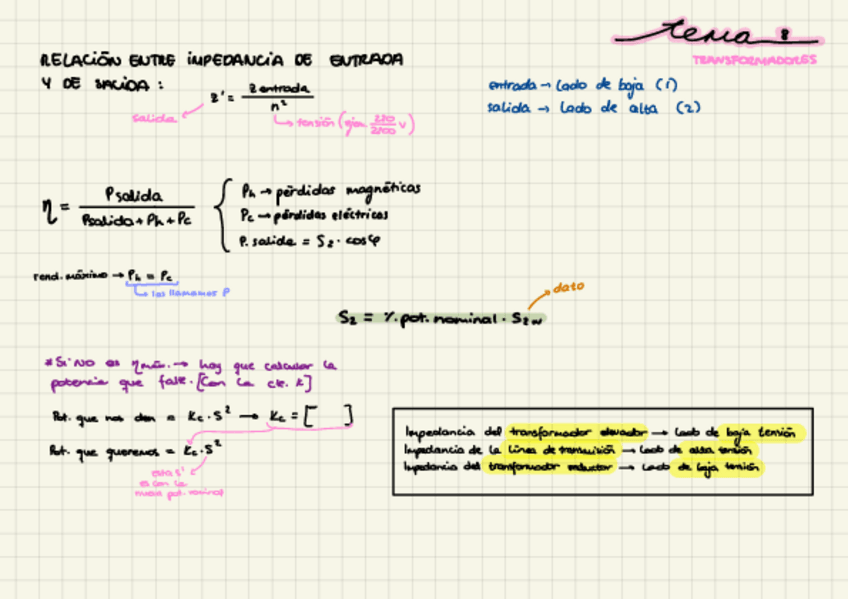 tema 8
TRANSFORMADORES
RELACIÓN ENTRE IMPEDANCIA DE ENTRADA
Y DE SALIDA:
z' = z entrada / n²
salida
tensión (ejm. 220/2200 V)
entrada → Lado de baja (1)
salida → Lado de alta (2)
η = Psalida / Psalida + Ph + Pc
Ph → pérdidas magnéticas
Pc → pérdidas eléctricas
P. salida = S₂ · cosφ
rend. máximo → Ph = Pc
las llamamos P
dato
S₂ = %. pot. nominal · S₂N
*Si NO es ηmáx. → hay que calcular la
potencia que falte. [Con la cte. K]
Pot. que nos dan = Kc · S² → Kc = [ ]
Pot. que queremos = Kc · S²
esta S'
es con la
nueva pot. nominal
Impedancia del transformador elevador → Lado de baja tensión
Impedancia de la línea de transmisión → Lado de alta tensión
Impedancia del transformador reductor → Lado de baja tensión